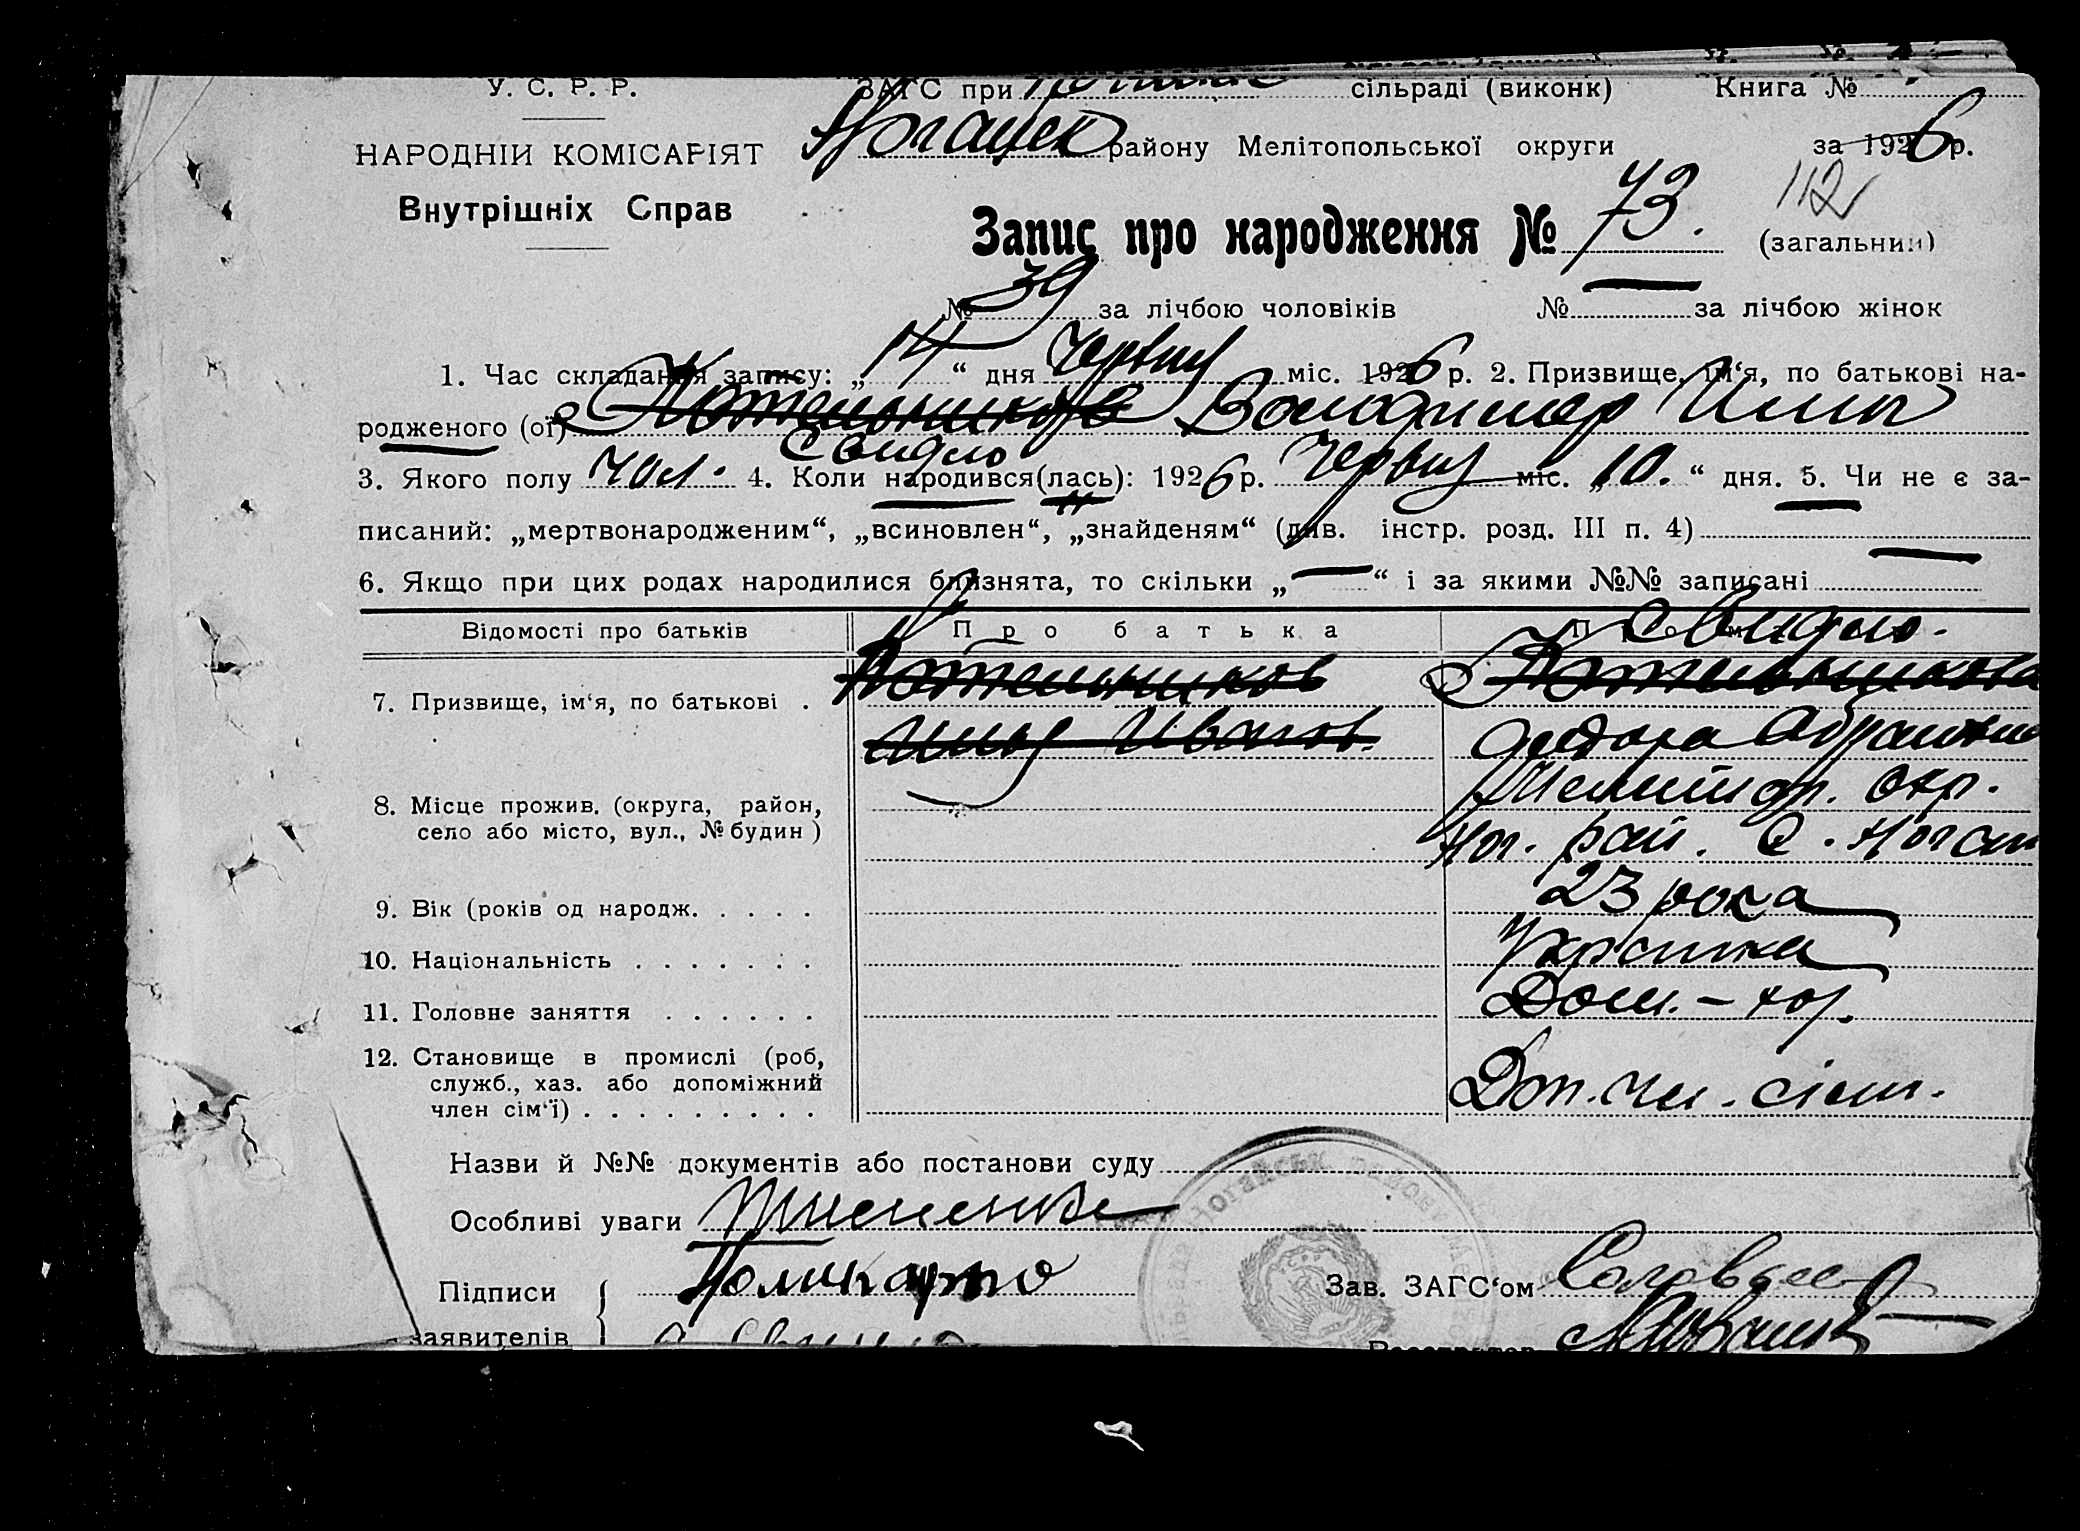 У. С. Р. Р.
ЗАГС при сільраді (виконк) Книга №
НАРОДНІЙ КОМІСАРІЯТ
Ногайськ району Мелітопольської округи за 1926 р.
Внутрішніх Справ
112
Запис про народження № 73. (загальний)
№ 39 за лічбою чоловіків № — за лічбою жінок
1. Час складання запису: „14“ дня Червня міс. 1926 р. 2. Призвище, ім‘я, по батькові на-
родженого (ої) Котельников Володимер Ильи
Свидло
3. Якого полу чол. 4. Коли народився(лась): 1926 р. Червня міс. „10.“ дня. 5. Чи не є за-
писаний: „мертвонародженим“, „всиновлен“, „знайденям“ (див. інстр. розд. III п. 4) —
6. Якщо при цих родах народилися близнята, то скільки „—“ і за якими №№ записані —
Відомості про батьків Про батька Свидло.
7. Призвище, ім‘я, по батькові . Котельников Котельникова
Илья Иванов.
8. Місце прожив. (округа, район, Мелитоп. окр.
село або місто, вул., № будин) Ног. рай. с.
9. Вік (років од народж. . . . . 23 рока
10. Національність . . . . . . . Українка
11. Головне заняття . . . . . . Дом.-хоз.
12. Становище в промислі (роб,
служб., хаз. або допоміжний Доп. чл. сім.
член сім‘ї) . . . . . . . . .
Назви й №№ документів або постанови суду
Особливі уваги
Підписи Зав. ЗАГС‘ом
заявителів